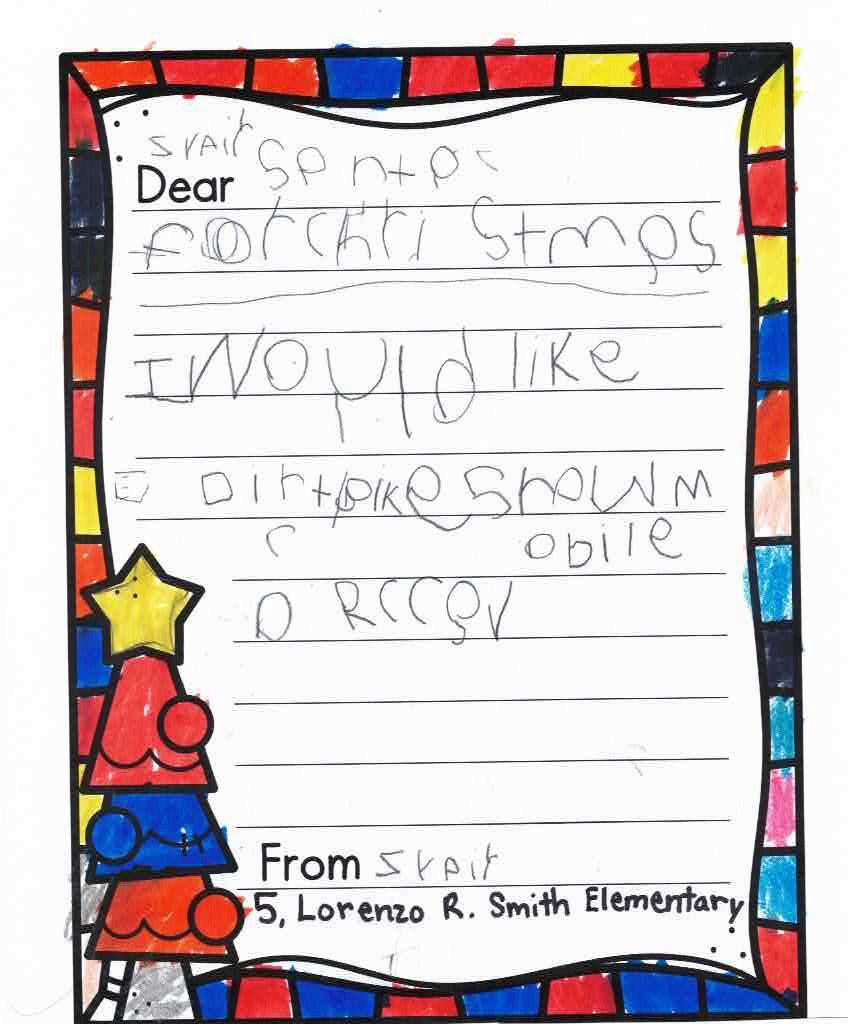 Dear Santa
for christmas
I Would like
Dirtbike snowm
obile
a RCCar
From
5, Lorenzo R. Smith Elementary